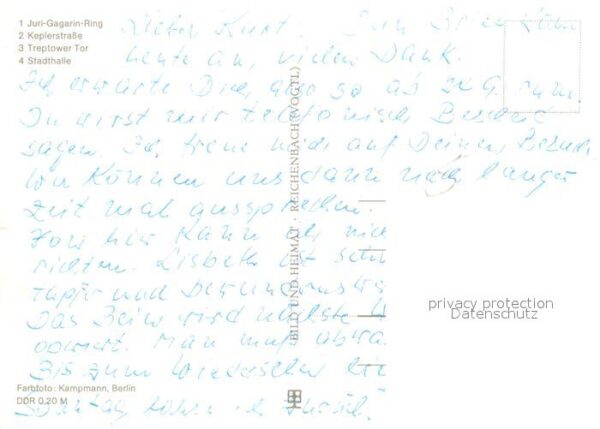 1 Juri-Gagarin-Ring
2 Keplerstraße
3 Treptower Tor
4 Stadthalle
Lieber Kurt. Dein Brief kam
heute an, vielen Dank.
Ich erwarte Dich also so ab
Du wirst mir telefonisch Bescheid
sagen. Ich freue mich auf Deinen Besuch
Wir können uns dann nach langer
Zeit mal aussprechen.
Von hier kann ich nich
richten. Lisbeth ist sehr
tapfer und
Das Bein wird nächste
operiert. Man muß abwa
Bis zum Wiedersehen
BILD UND HEIMAT · REICHENBACH (VOGTL)
privacy protection
Datenschutz
Farbfoto: Kampmann, Berlin
DDR 0,20 M